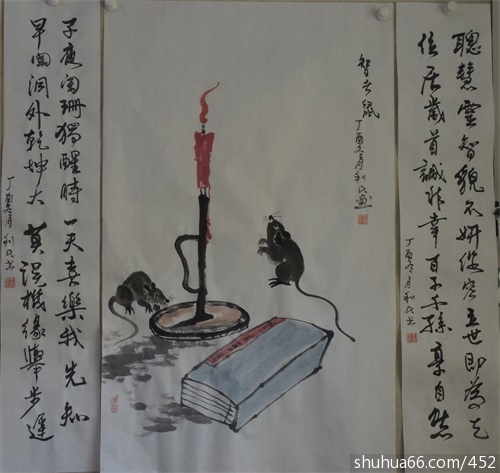 聰慧靈智貌不妍俊容立世即為先
位居歲首誠非幸百子千孫享自然
丁酉冬月利民书
鼠
丁酉冬月利民画
子夜阑珊獨醒時一天喜樂我先知
早闻洞外乾坤大莫误機缘舉步遲
丁酉冬月利民书
shuhua66.com/452